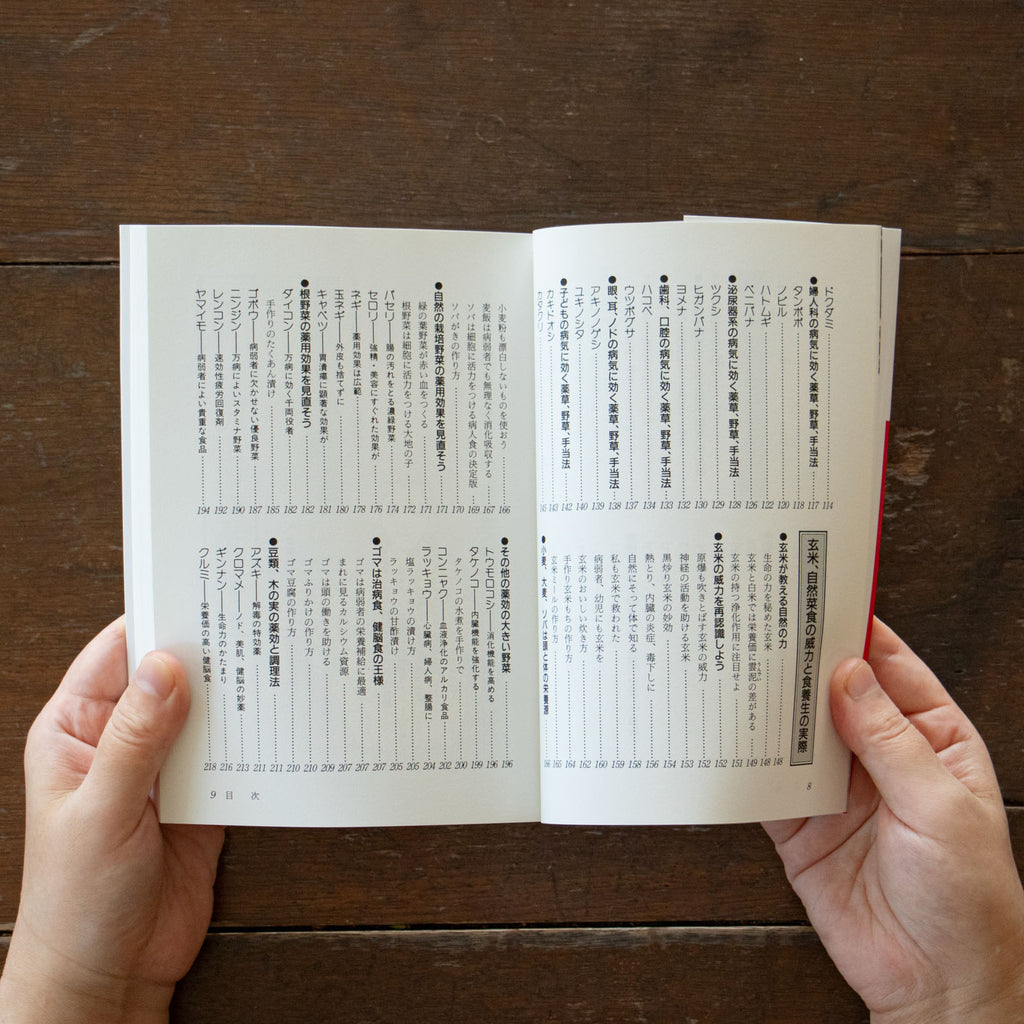 ドクダミ……114
●婦人科の病気に効く薬草、野草、手当法……117
タンポポ……118
ノビル……120
ハトムギ……122
ベニバナ……126
●泌尿器系の病気に効く薬草、野草、手当法……128
ツクシ……128
ヒガンバナ……130
ヨメナ……132
●歯科、口腔の病気に効く薬草、野草、手当法……133
ハコベ……134
ウツボグサ……137
●眼、耳、ノドの病気に効く薬草、野草、手当法……138
アキノノゲシ……139
ユキノシタ……140
●子どもの病気に効く薬草、野草、手当法……142
カキドオシ……143
カタクリ……145
玄米、自然菜食の威力と食養生の実際
●玄米が教える自然の力……148
生命の力を秘めた玄米……148
玄米と白米では栄養価に雲泥の差がある……149
うんでい
玄米の持つ浄化作用に注目せよ……151
●玄米の威力を再認識しよう……152
原爆も吹きとばす玄米の威力……152
神経の活動を助ける玄米……153
黒炒り玄米の妙効……154
熱とり、内臓の炎症、毒下しに……156
自然にそって体で知る……158
私も玄米で救われた……159
病弱者、幼児にも玄米を……160
玄米のおいしい炊き方……162
手作り玄米もちの作り方……164
玄米ミールの作り方……165
●小麦、大麦、ソバは頭と体の栄養源……166
8
小麦粉も漂白しないものを使おう……166
麦飯は病弱者でも無理なく消化吸収する……167
ソバは細胞に活力をつける病人食の決定版……169
ソバがきの作り方……170
●自然の栽培野菜の薬用効果を見直そう……171
緑の葉野菜が赤い血をつくる……171
根野菜は細胞に活力をつける大地の子……172
パセリ――腸の汚れをとる濃緑野菜……174
セロリ――強精・美容にすぐれた効果が……176
ネギ――薬用効果は広範……178
玉ネギ――外皮も捨てずに……180
キャベツ――胃潰瘍に顕著な効果が……181
●根野菜の薬用効果を見直そう……182
ダイコン――万病に効く千両役者……182
手作りのたくあん漬け……185
ゴボウ――病弱者に欠かせない優良野菜……187
ニンジン――万病によいスタミナ野菜……190
レンコン――速効性疲労回復剤……192
ヤマイモ――病弱者によい貴重な食品……194
●その他の薬効の大きい野菜……196
トウモロコシ――消化機能を高める……196
タケノコ――内臓機能を強化する……199
タケノコの水煮を手作りで……200
コンニャク――血液浄化のアルカリ食品……202
ラッキョウ――心臓病、婦人病、整腸に……204
塩ラッキョウの漬け方……205
ラッキョウの甘酢漬け……205
●ゴマは治病食、健脳食の王様……207
ゴマは病弱者の栄養補給に最適……207
まれに見るカルシウム資源……207
ゴマは頭の働きを助ける……209
ゴマふりかけの作り方……210
ゴマ豆腐の作り方……210
●豆類、木の実の薬効と調理法……211
アズキ――解毒の特効薬……211
クロマメ――ノド、美肌、健脳の妙薬……213
ギンナン――生命力のかたまり……216
クルミ――栄養価の高い健脳食……218
9 目 次